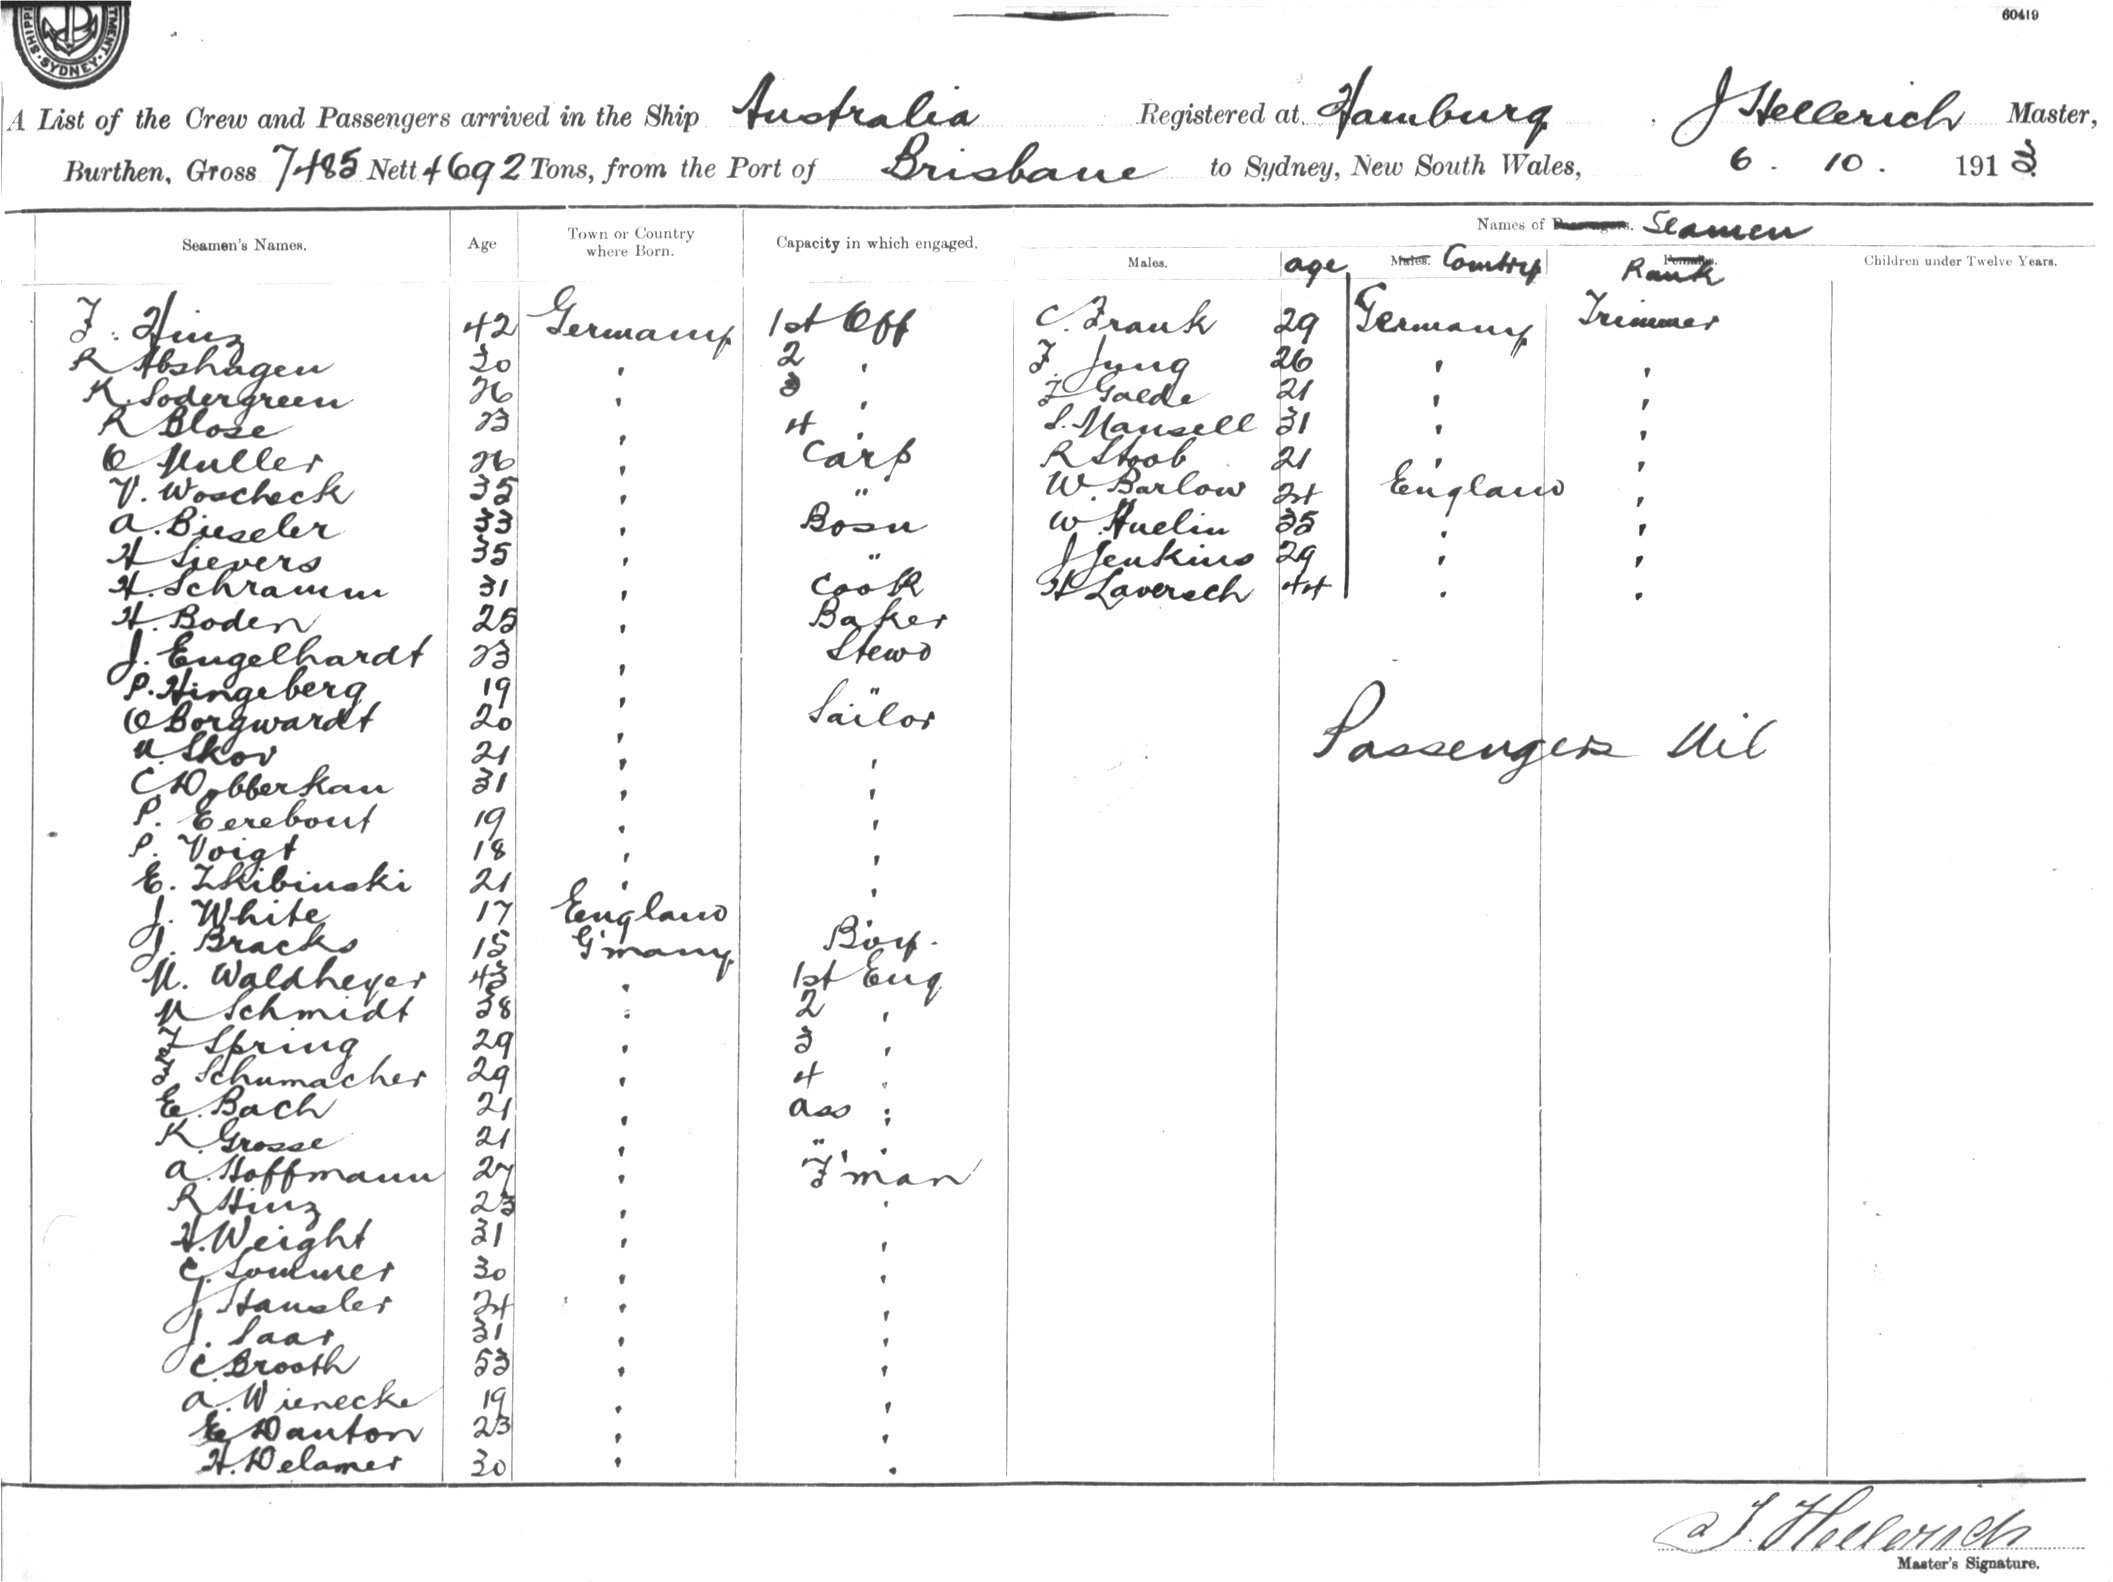 SHIPPI
TMENT
SYDNEY
60419
A List of the Crew and Passengers arrived in the Ship Australia Registered at Hamburg, J Hellerich Master,
Burthen, Gross 7485 Nett 4692 Tons, from the Port of Brisbane to Sydney, New South Wales, 6 . 10 . 1913
Names of Passengers. Seamen
Seamen's Names. Age Town or Country where Born. Capacity in which engaged. Males. age Males. Country Females. Rank Children under Twelve Years.
F. Hinz 42 Germany 1st Off C. Frank 29 Germany Trimmer
R Abshagen 30 " 2 " F. Jung 26 " "
K. Sodergreen 26 " 3 " F Galde 21 " "
R Blose 23 " 4 " S. Mansell 31 " "
O Muller 26 " Carp R Stoob 21 " "
V. Woscheck 35 " " W. Barlow 24 England "
A. Bieseler 33 " Bosn W. Huelin 35 " "
H Sievers 35 " " J Jenkins 29 " "
H. Schramm 31 " Cook H Laversch 44 " "
H. Boden 25 " Baker
J. Engelhardt 23 " Stewd
P. Hingeberg 19 " "
O Borgwardt 20 " Sailor
Skov 21 " "
Passengers Nil
C Dobberkau 31 " "
P. Eerebout 19 " "
P. Voigt 18 " "
E. Zkibinski 21 " "
J. White 17 England "
J. Bracks 15 G'many Boy.
M. Waldheyer 43 " 1st Eng
M Schmidt 38 " 2 "
F Spring 29 " 3 "
F Schumacher 29 " 4 "
E. Bach 21 " Ass "
K Grosse 21 " " "
A. Hoffmann 27 " F'man
R Hinz 23 " "
H. Weight 31 " "
C. Sommer 30 " "
J. Hansler 24 " "
J. Saar 31 " "
C. Brooth 53 " "
A. Wienecke 19 " "
E Danton 23 " "
H. Delamer 30 " "
J. Hellerich
Master's Signature.